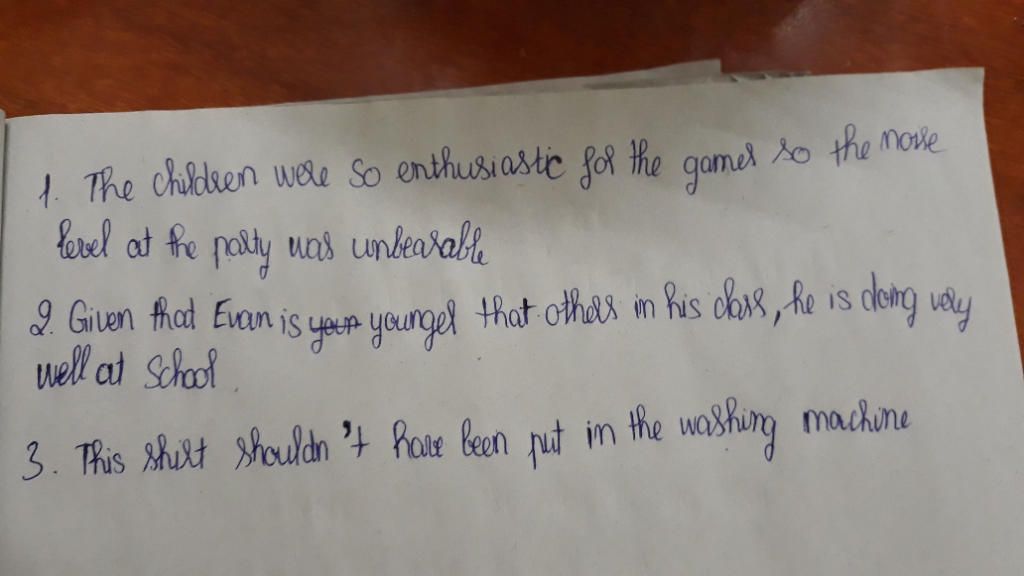 1. The children were so enthusiastic for the games so the noise
level at the party was unbearable
2. Given that Evan is your younger that others in his class, he is doing very
well at school.
3. This shirt shouldn't have been put in the washing machine